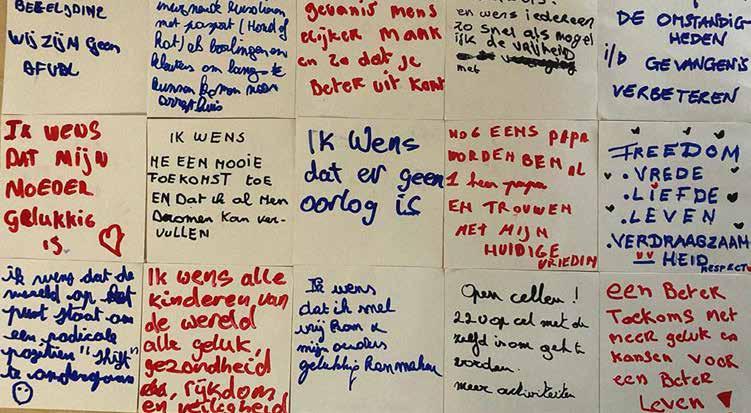 BEGELIJDING
WIJ ZIJN GEEN
AFVAL
met parpat (Hond of
Kat) als
kleuters om lang te
kunnen komen naar
gevanis mens
elijker maak
en zo dat je
Beter uit komt
en wens iedereen
zo snel als mogel
ijk de vrijheid
met
DE OMSTANDIG-
HEDEN
i/d GEVANGENIS
VERBETEREN
Ik wens
DAT MIJN
MOEDER
gelukkig
is.
IK WENS
ME EEN MOOIE
TOEKOMST TOE
EN Dat ik al Men
Dromen kan ver-
vullen
IK Wens
dat er geen
oorlog is
NOG EENS PAPA
WORDEN BEN AL
1 keer papa
EN TROUWEN
MET MIJN
HUIDIGE
VRIEDIN
FREEDOM
. VREDE
. LIEFDE
. LEVEN
. VERDRAAGZAAM
HEID
RESPECT
ik wens dat de
wereld op het
punt staat om
een radicale
positieve "shift"
te ondergaan
Ik wens alle
kinderen van
de wereld
alle geluk,
gezondheid,
rijkdom
en veiligheid
Ik wens
dat ik snel
vrij kom &
mijn ouders
gelukkig kan maken
Open cellen!
22u op cel met de
zelfd
worden.
meer activiteiten
een Beter
Toekoms met
meer geluk en
kansen voor
een Beter
Leven